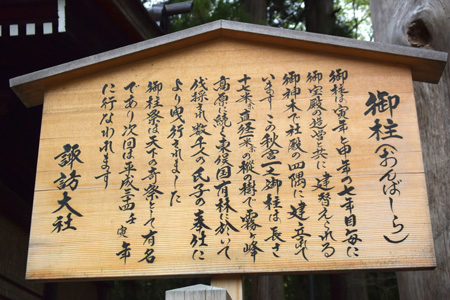 御柱（おんばしら）
御柱は寅年と申年の七年目毎に
御宝殿の造営と共に建替えられる
御神木で社殿の四隅に建立されて
います この秋宮一之御柱は長さ
十七米 直径一米余の樅の樹で霧ヶ峰
高原に続く東俣国有林に於いて
伐採され数千人の氏子の奉仕に
より曳行されました
御柱祭は天下の奇祭として有名
であり次回は平成二十四年
に行なわれます
諏訪大社